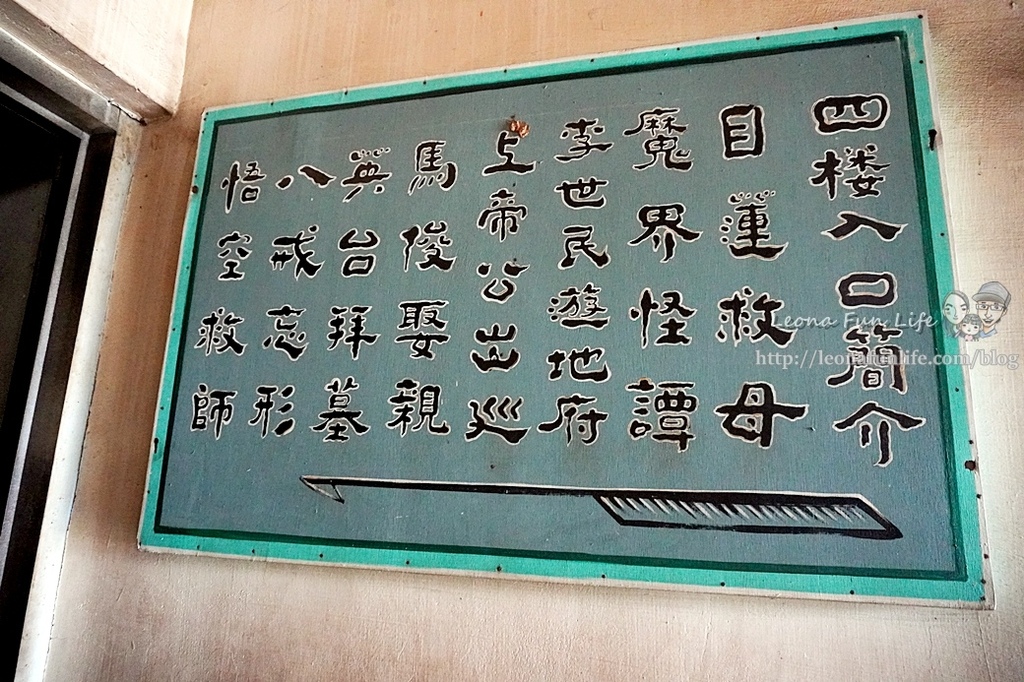 四楼入口簡介
目蓮救母
魔界怪譚
李世民遊地府
上帝公出巡
馬俊娶親
英台拜墓
八戒忘形
悟空救師
Leona Fun Life
http://leonafunlife.com/blog